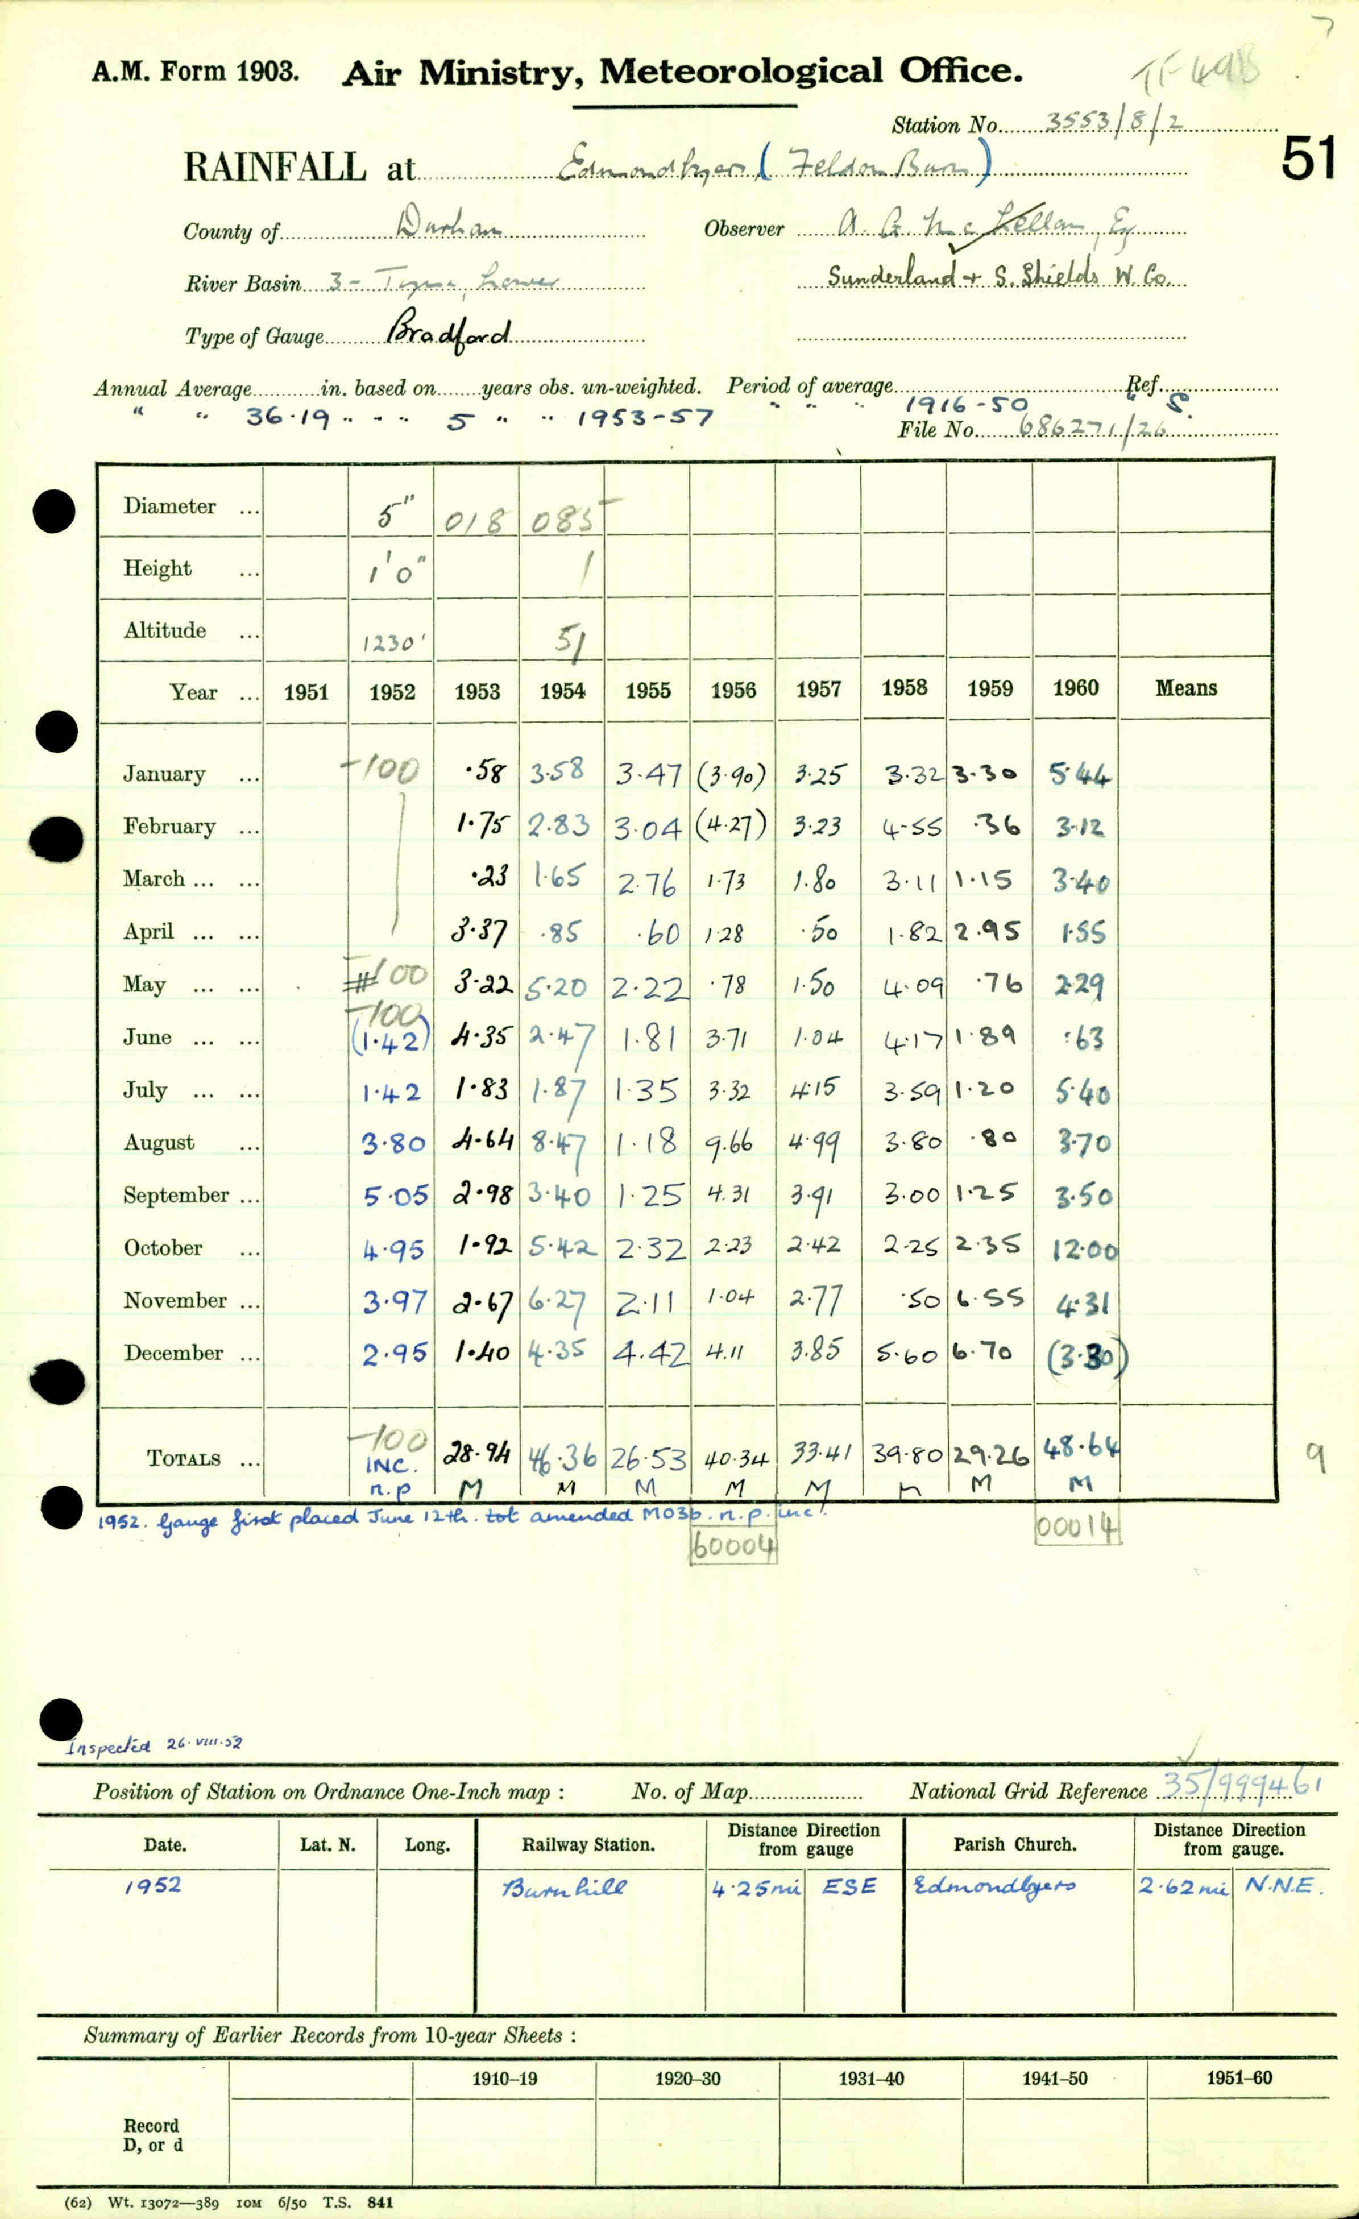 7
A.M. Form 1903. Air Ministry, Meteorological Office. TF 49B
Station No. 3553/8/2
RAINFALL at Edmondbyers (Feldon Burn) 51
County of Durham Observer A. G. McLellan, Esq
River Basin 3 - Tyne, Lower Sunderland + S. Shields W. Co.
Type of Gauge Bradford
Annual Average in. based on years obs. un-weighted. Period of average Ref.
" " 36.19 " " " 5 " " 1953-57 " " " 1916-50 " S.
File No. 686271/26
Diameter ... 5" 018 085
Height ... 1'0" 1
Altitude ... 1230' 51
Year ... 1951 1952 1953 1954 1955 1956 1957 1958 1959 1960 Means
January ... -100 .58 3.58 3.47 (3.90) 3.25 3.32 3.30 5.44
February ... 1.75 2.83 3.04 (4.27) 3.23 4.55 .36 3.12
March ... ... .23 1.65 2.76 1.73 1.80 3.11 1.15 3.40
April ... ... 3.37 .85 .60 1.28 .50 1.82 2.95 1.55
May ... ... -100 3.22 5.20 2.22 .78 1.50 4.09 .76 2.29
-100
June ... ... (1.42) 4.35 2.47 1.81 3.71 1.04 4.17 1.89 .63
July ... ... 1.42 1.83 1.87 1.35 3.32 4.15 3.59 1.20 5.40
August ... 3.80 4.64 8.47 1.18 9.66 4.99 3.80 .80 3.70
September ... 5.05 2.98 3.40 1.25 4.31 3.91 3.00 1.25 3.50
October ... 4.95 1.92 5.42 2.32 2.23 2.42 2.25 2.35 12.00
November ... 3.97 2.67 6.27 2.11 1.04 2.77 .50 6.55 4.31
December ... 2.95 1.40 4.35 4.42 4.11 3.85 5.60 6.70 (3.30)
-100
TOTALS ... INC. 28.94 46.36 26.53 40.34 33.41 39.80 29.26 48.64 9
n.p M M M M M M M M
1952. Gauge first placed June 12th. tot amended MO3b. n.p. inc.
60004 00014
Inspected 26.VIII.52
Position of Station on Ordnance One-Inch map : No. of Map National Grid Reference 35/999461
Date. Lat. N. Long. Railway Station. Distance Direction from gauge Parish Church. Distance Direction from gauge.
1952 Burnhill 4.25mi ESE Edmondbyers 2.62mi N.N.E.
Summary of Earlier Records from 10-year Sheets :
1910–19 1920–30 1931–40 1941–50 1951–60
Record
D, or d
(62) Wt. 13072—389 10M 6/50 T.S. 841